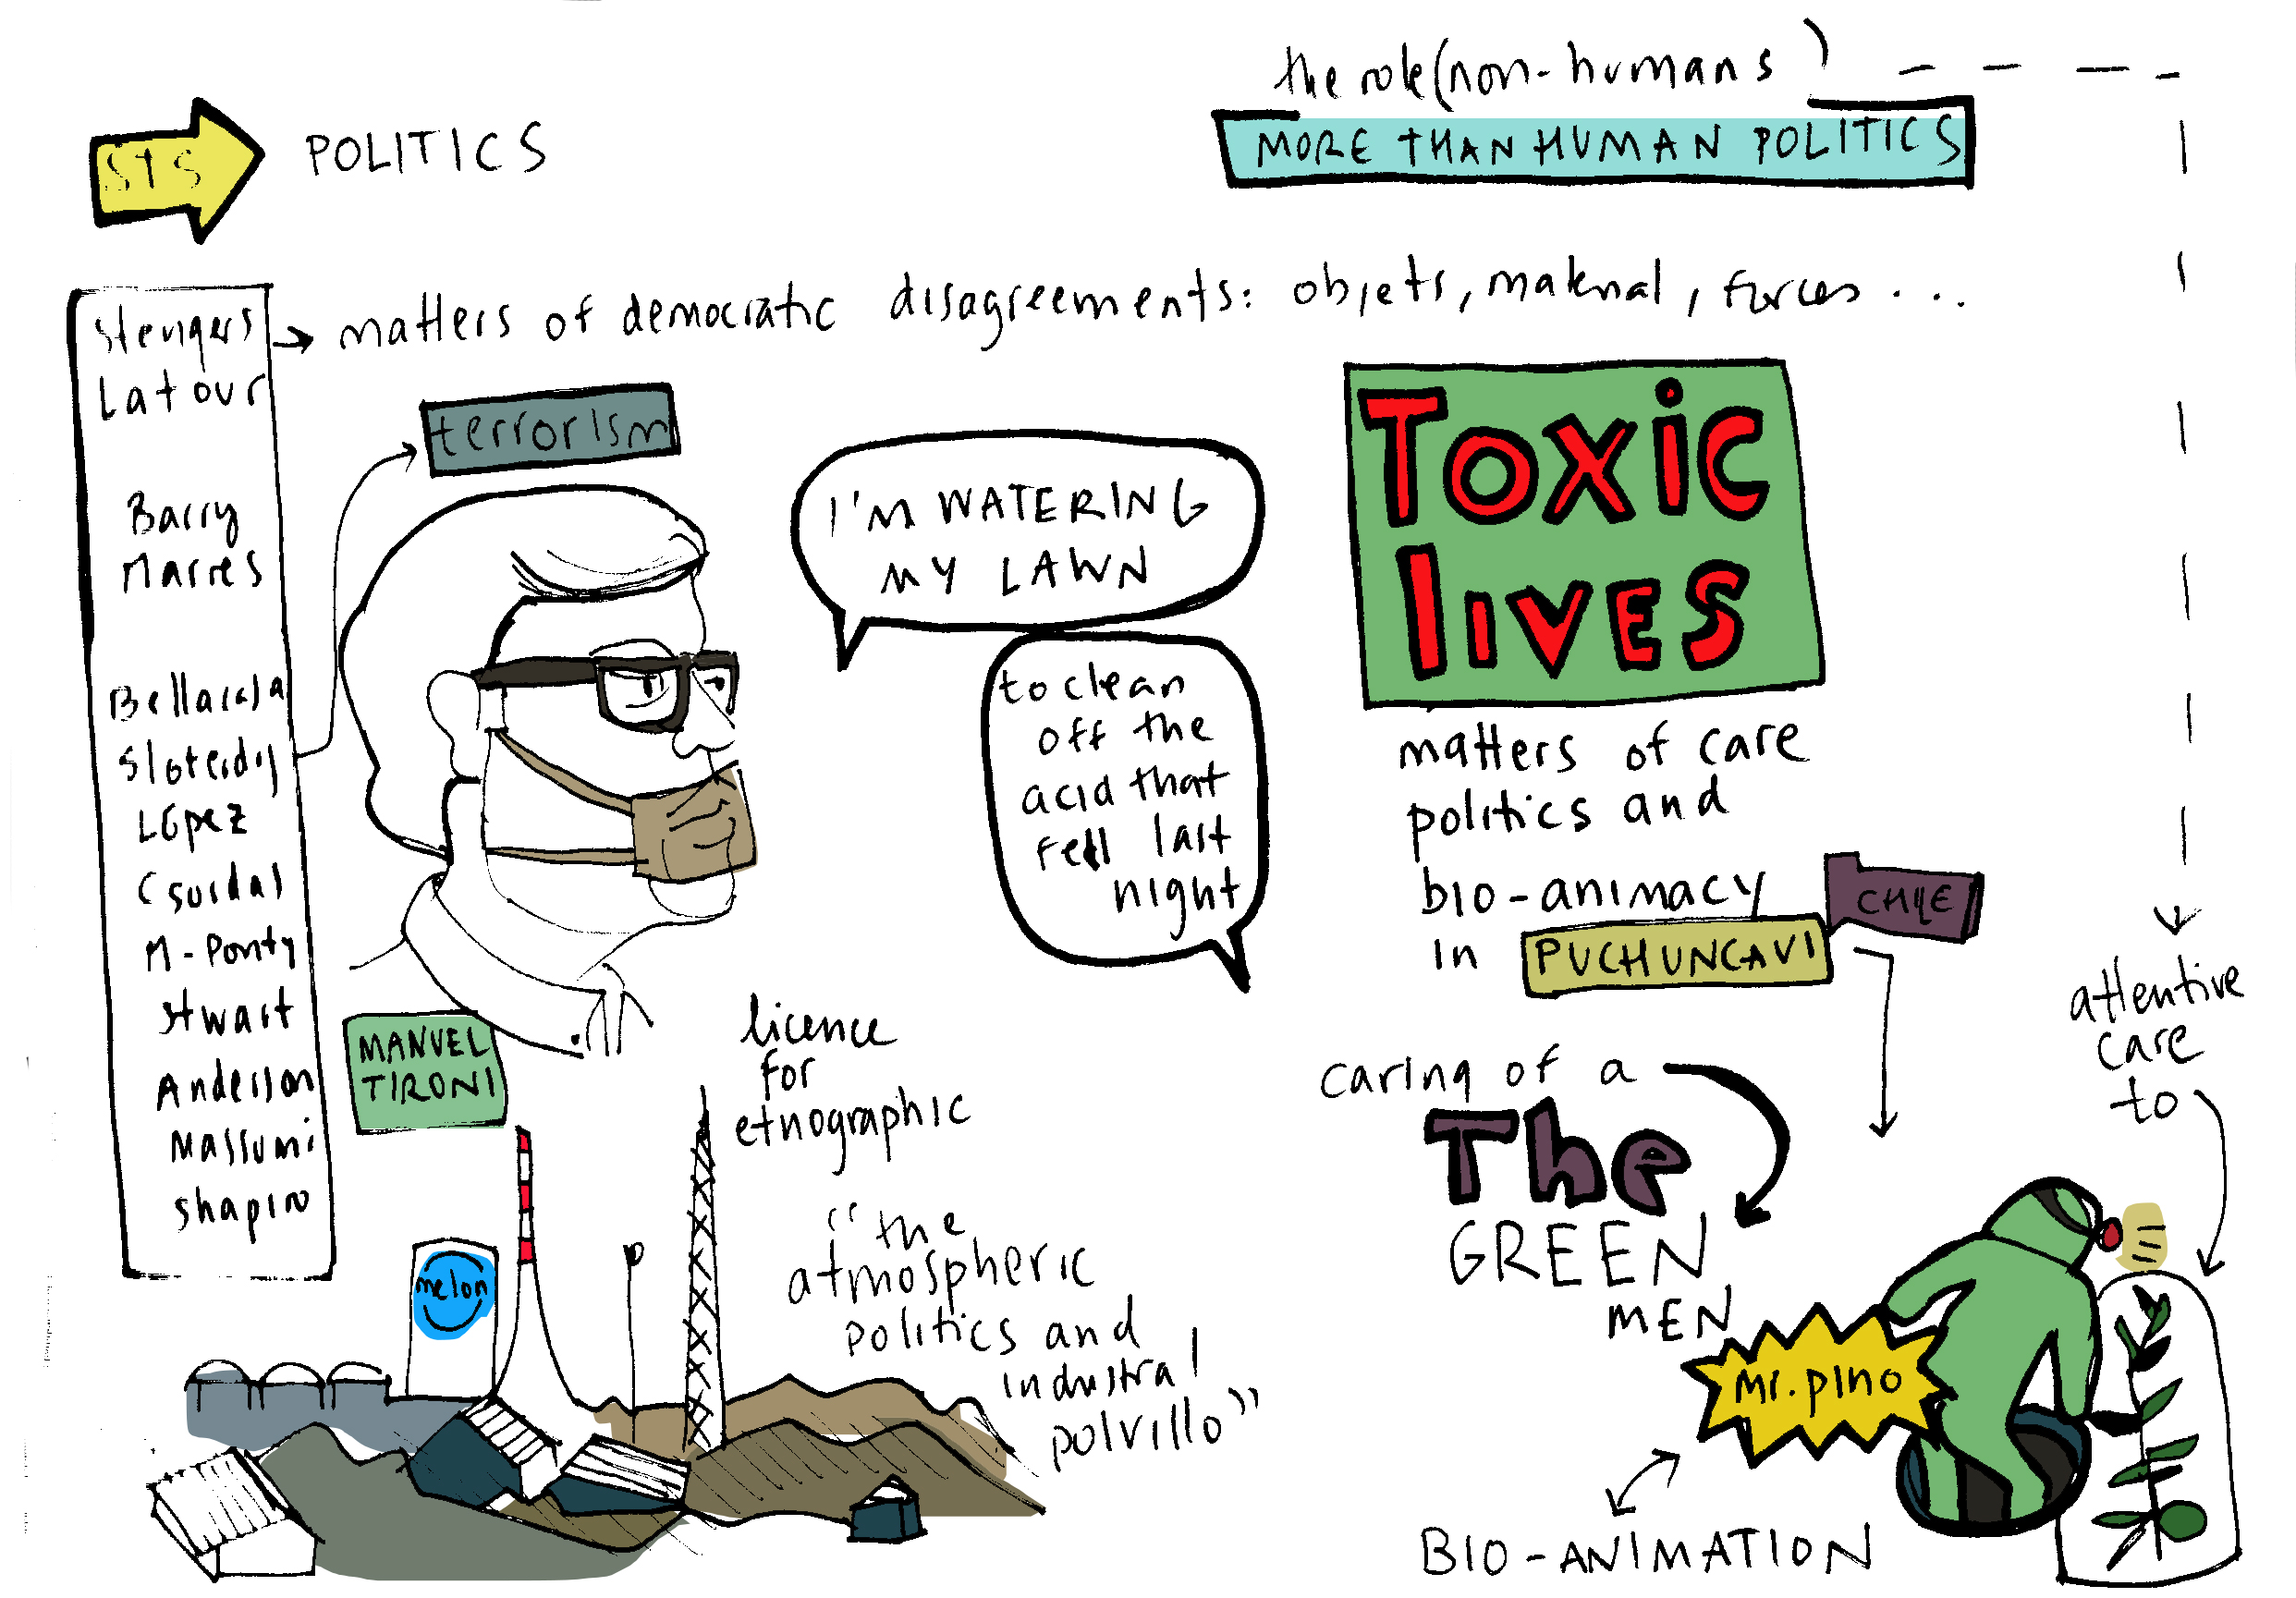 the role (non-humans)
MORE THAN HUMAN POLITICS
STS
POLITICS
Stengers
Latour
Barry
Marres
Bellacasa
Sloterdij
López
Csordas
M-Ponty
Stwart
Anderson
Massumi
Shapiro
matters of democratic disagreements: objets, material, forces...
terrorism
I'M WATERING
MY LAWN
to clean
off the
acid that
fell last
night
TOXIC
LIVES
matters of care
politics and
bio-animacy
in PUCHUNCAVI
CHILE
MANUEL
TIRONI
licence
for
etnographic
"the
atmospheric
politics and
industrial
polvillo"
melon
caring of a
The
GREEN
MEN
mr. pino
BIO-ANIMATION
attentive
care
to